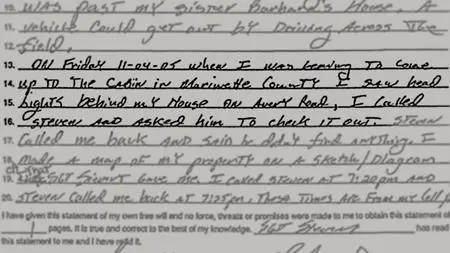 10. WAS PAST MY SISTER Barbara's House. A
11. vehicle could get out by Driving Across The
12. field.
13. ON FRIDAY 11-04-05 when I was leaving To come
14. up TO THE CABIN in MARINETTE COUNTY I SAW head
15. lights behind my House on Avery Road, I called
16. STEVEN AND ASKED him TO check it out. STEVEN
17. Called me back AND SAID he didn't find anything. I
18. MADE A map of my property on A sketch/Diagram
19. that SGT Gave me. I called STEVEN AT 7:20pm AND
20. STEVEN Called me back at 7:25pm. These Times Are From my Cell p
I have given this statement of my own free will and no force, threats or promises were made to me to obtain this statement of
1 pages. It is true and correct to the best of my knowledge. SGT has read
this statement to me and I have read it.